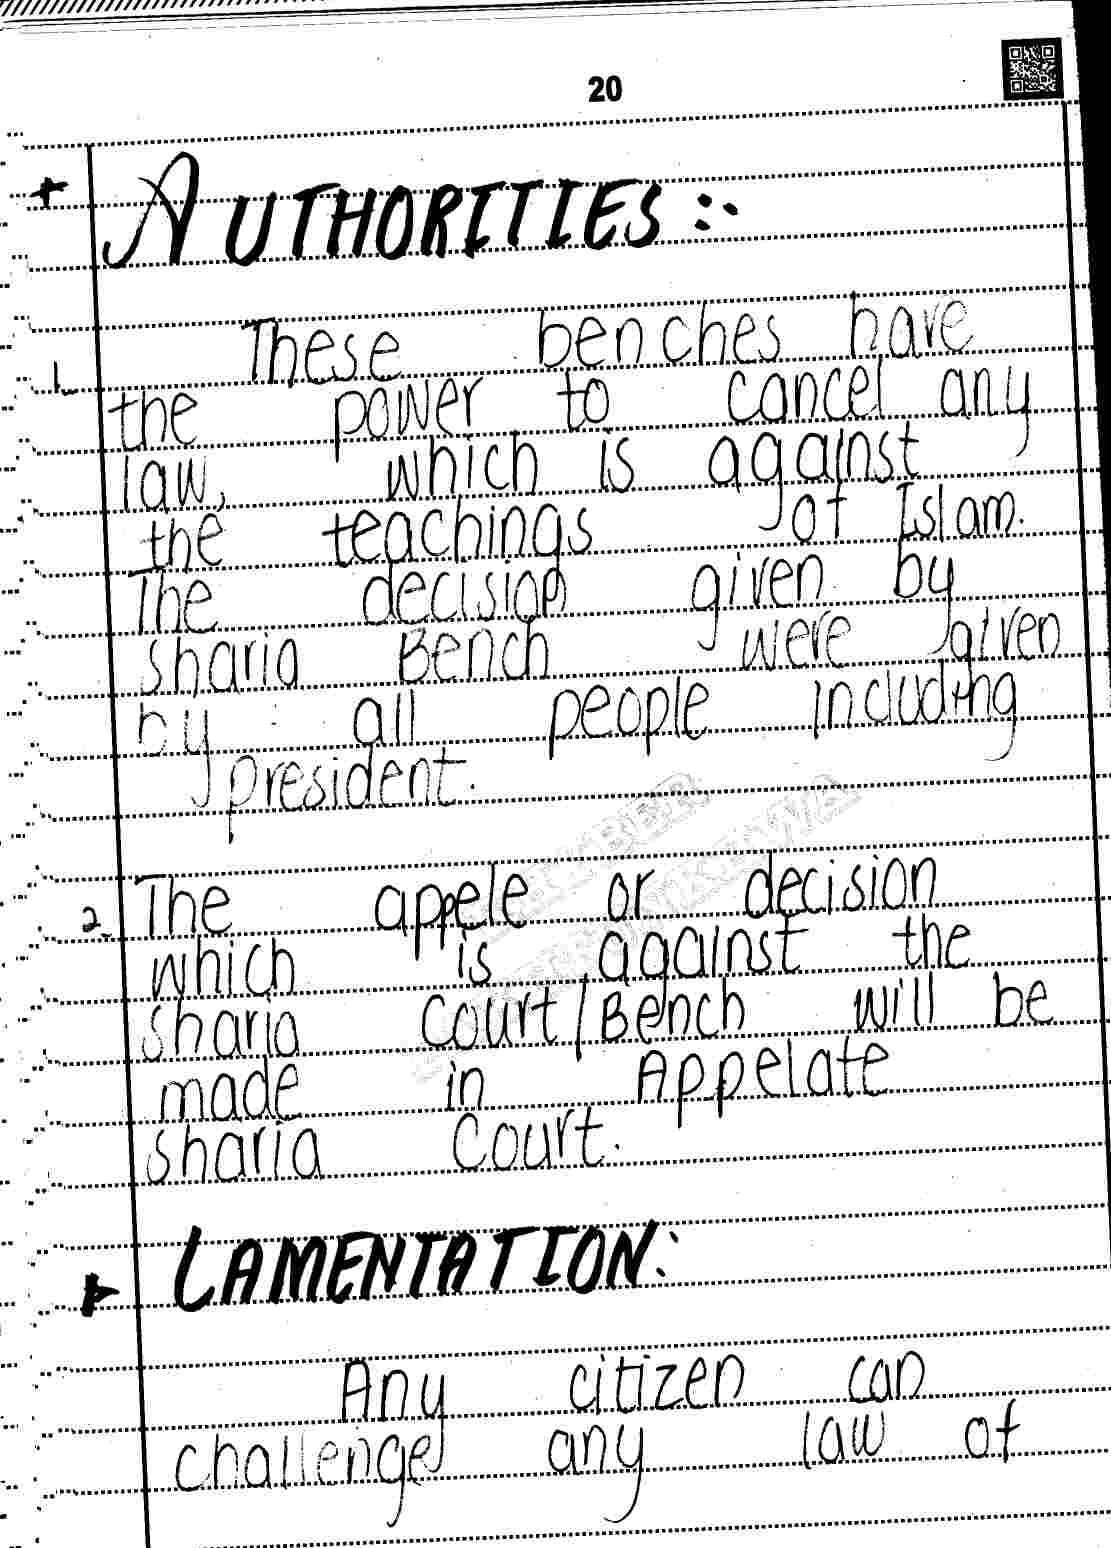 20
+ AUTHORITIES :-
These benches have
1. the power to cancel any
law, which is against
the teachings of Islam.
The decision given by
sharia Bench were given
by all people including
president.
2. The appele or decision
which is against the
sharia Court/Bench will be
made in Appelate
sharia Court.
LAMENTATION:
Any citizen can
challenge any law of